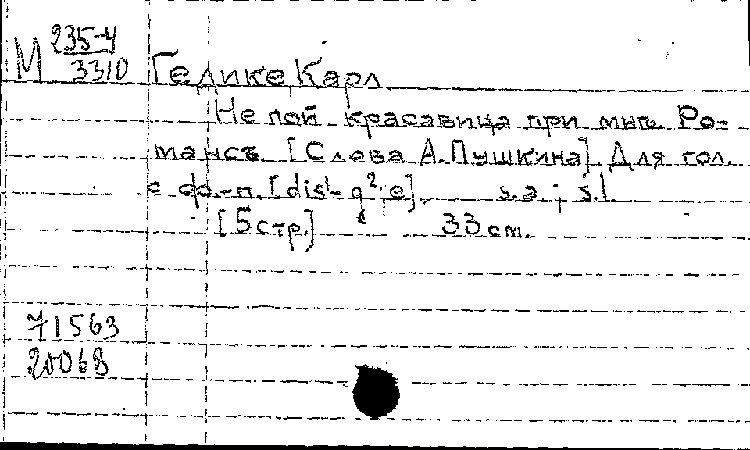 М 235-4
3310 Гедике Карл
Не пой красавица при мнѣ. Ро-
мансъ. [Слова А. Пушкина] Для гол.
с фо-п. [dis1- g².e]. s.a.; s.l.
[5 стр.] 33 cm.
71563
20068